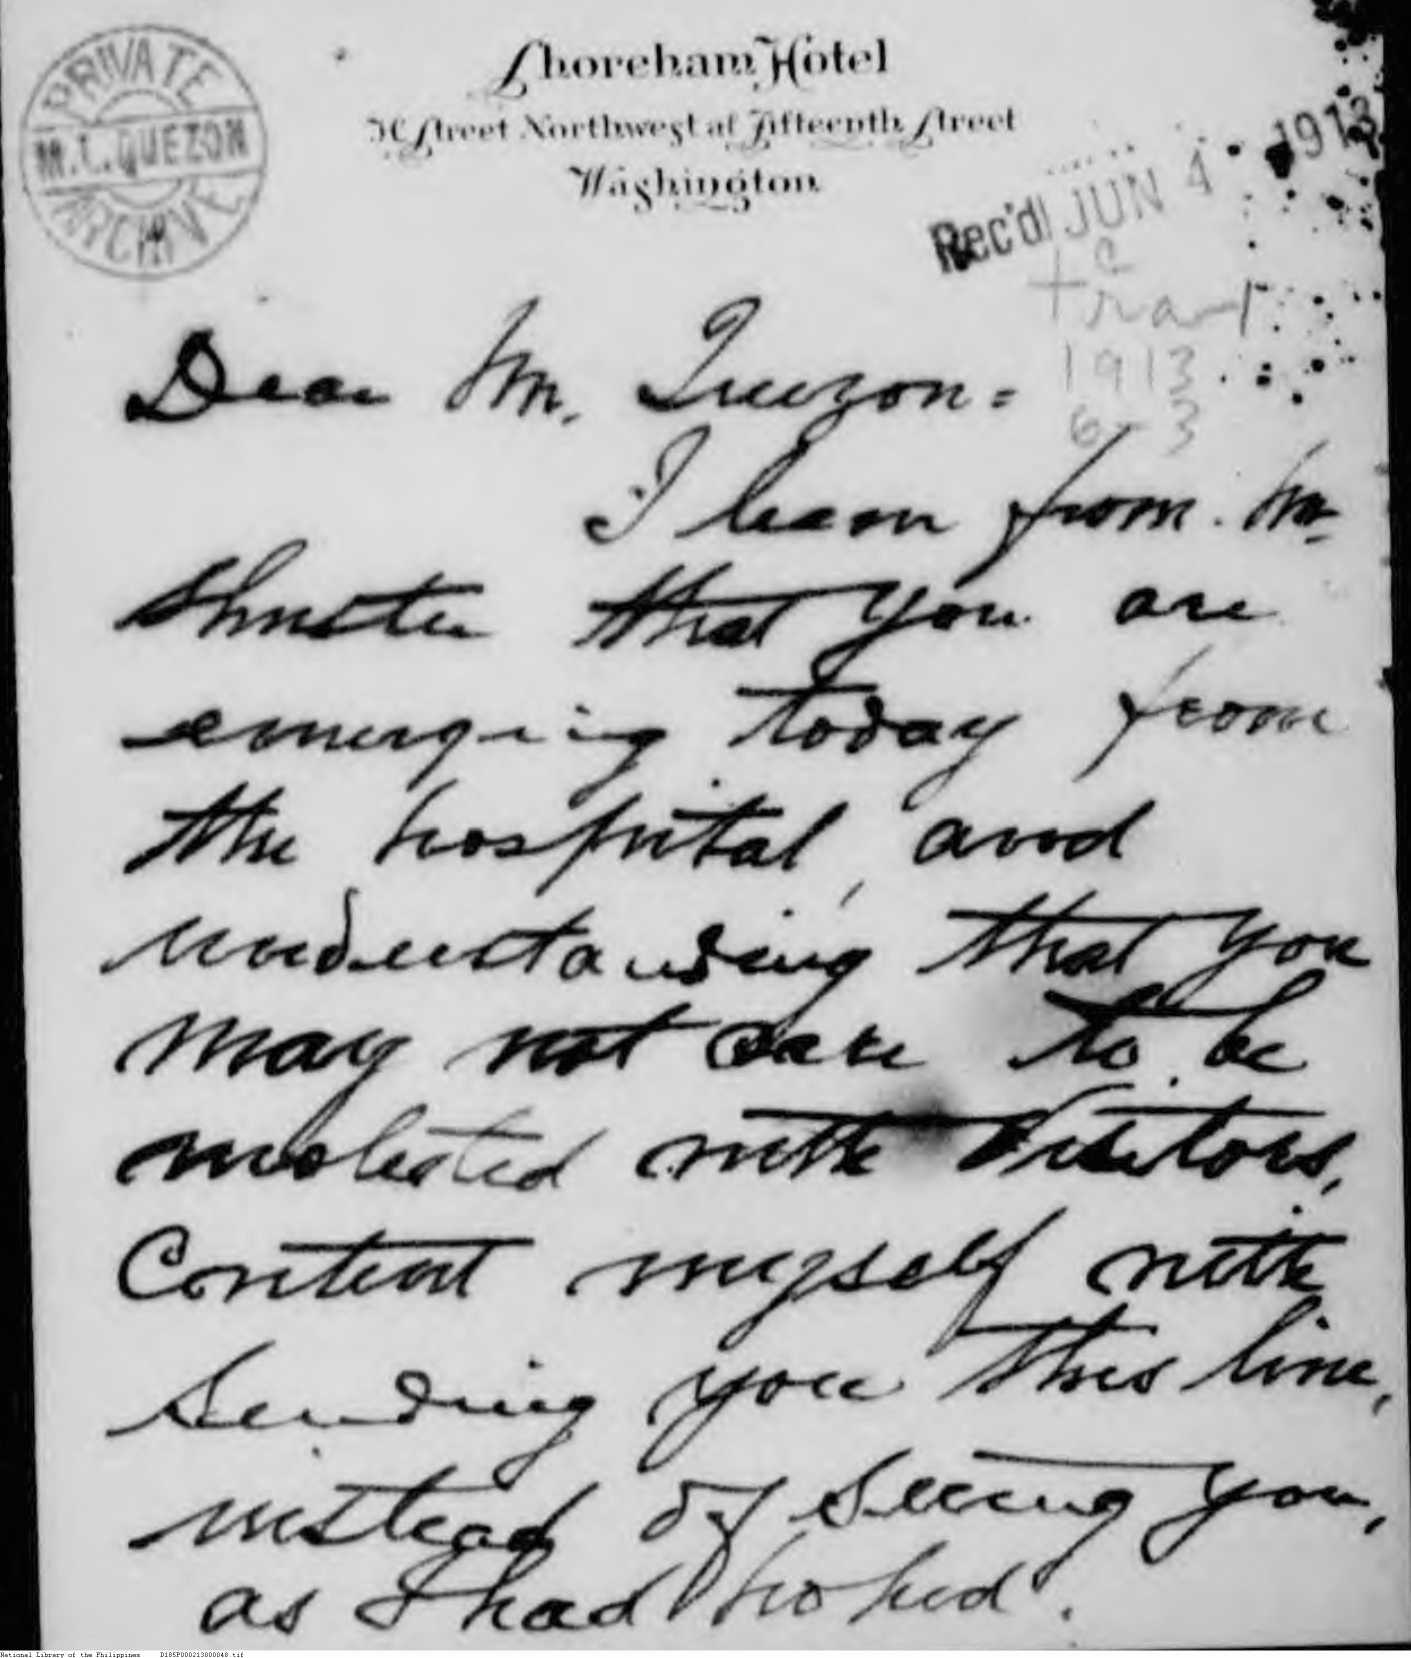 PRIVATE
M.L.QUEZON
ARCHIVE
Shoreham Hotel
H Street Northwest at Fifteenth Street
Washington
Rec'd JUN 4 1913
1913
6-3
Dear Mr. Quezon=
I learn from Mr.
Shuster that you are
emerging today from
the hospital, and
understanding that you
may not care to be
molested with visitors,
Content myself with
sending you this line,
instead of seeing you,
as I had hoped.
National Library of the Philippines D185P000213800048.tif